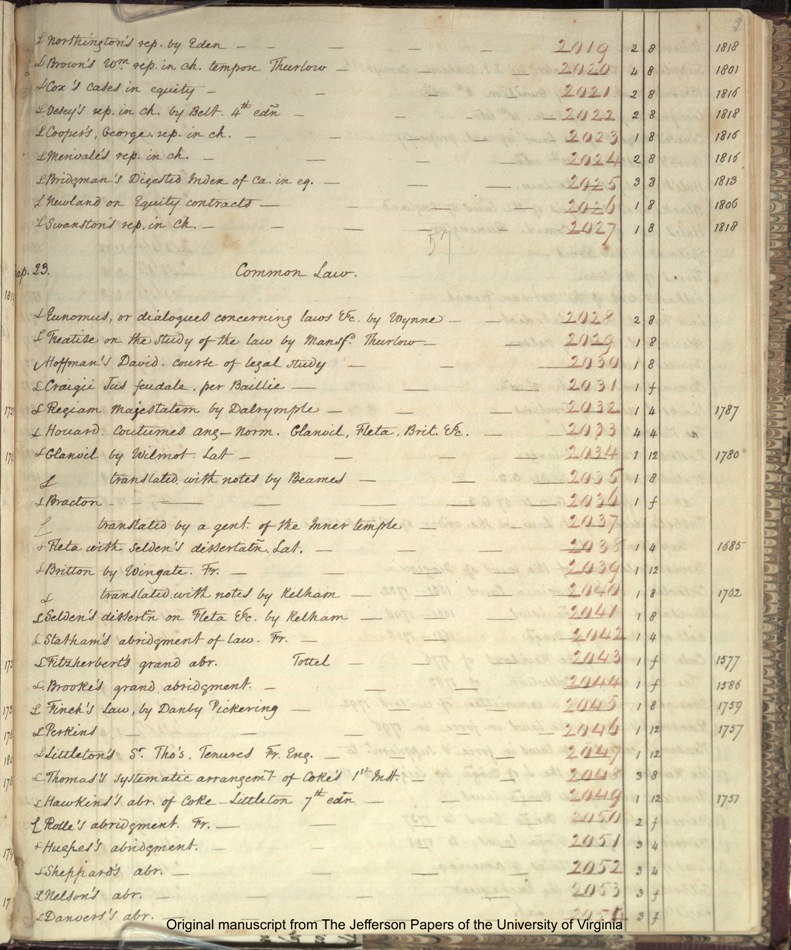 2
L Northington's rep. by Eden — — — — 2019 2 8 1818
L Brown's Wm rep. in ch. tempore Thurlow — — — 2020 4 8 1801
L Cox's cases in equity — — — — 2021 2 8 1816
L Vesey's rep. in ch. by Belt. 4th edn — — — 2022 2 8 1818
L Cooper's, George. rep. in ch. — — — — 2023 1 8 1816
L Merivale's rep. in ch. — — — — 2024 2 8 1816
L Bridgman's Digested Index of Ca. in eq. — — — 2025 3 8 1813
L Newland on Equity contracts — — — — 2026 1 8 1806
L Swanston's rep. in ch. — — — 2027 1 8 1818
57
ap. 23. Common Law.
L Eunomus, or dialogues concerning laws &c. by Wynne — — 2028 2 8
L Treatise on the study of the law by Mansfd. Thurlow — — 2029 1 8
Hoffman's David. course of legal study — — — 2030 1 8
L Craigii Jus feudale, per Baillie — — — — 2031 1 f
L Regiam majestatem by Dalrymple — — — — 2032 1 4 1787
L Houard. Coutumes Ang-Norm. Glanvil, Fleta, Brit. &c. — 2033 4 4
L Glanvil by Wilmot. Lat — — — — 2034 1 12 1780
L translated with notes by Beames — — — 2035 1 8
L Bracton — — — — — 2036 1 f
L translated by a gent. of the Inner temple — — 2037
L Fleta with Selden's dissertatn. Lat. — — — 2038 1 4 1685
L Britton by Wingate. Fr. — — — — 2039 1 12
L translated with notes by Kelham — — — 2040 1 8 1762
L Selden's dissertn on Fleta &c. by Kelham — — — 2041 1 8
L Statham's abridgment of law. Fr. — — — 2042 1 4
L Fitzherbert's grand abr. Tottel — — — 2043 1 f 1577
L Brooke's grand abridgment. — — — — 2044 1 f 1586
L Finch's Law, by Danby Pickering — — — — 2045 1 8 1759
L Perkins — — — — — 2046 1 12 1757
L Littleton's Sr. Tho's. Tenures Fr. Eng. — — — 2047 1 12
L Thomas's systematic arrangemt of Coke's 1st Inst. — — 2048 3 8
L Hawkins's abr. of Coke-Littleton 7th edn — — — 2049 1 12 1751
L Rolle's abridgment. Fr. — — — — 2050 2 f
L Hughes's abridgment. — — — — 2051 3 4
L Sheppard's abr. — — — — 2052 3 4
L Nelson's abr. — — — — 2053 3 f
L Danvers's abr. — 2054 3 f
Original manuscript from The Jefferson Papers of the University of Virginia